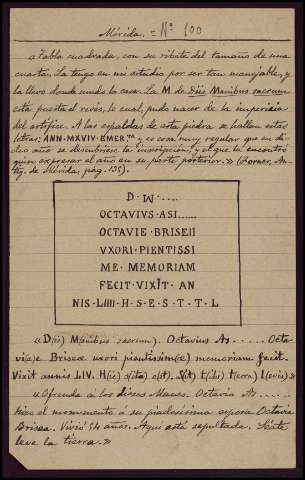 Mérida. = Nº 100
«Tabla cuadrada, con su ribete del tamaño de una
cuarta. La tengo en mi estudio por ser tan manejable, y
la llevo donde mudo la casa. La M de Diis Manibus sacrum
está puesta al revés, lo cual pudo nacer de la impericia
del artífice. A las espaldas de esta piedra se hallan estas
letras: ANN·MXVIV·EMER. y es cosa muy regular que en
dicho año se descubriese la inscripción, y el que la encontró
quiso expresar el año en su parte posterior.» (Forner, An-
tig. de Mérida, pág. 135).
D·W....
OCTAVIVS·ASI......
OCTAVIE·BRISEII
VXORI·PIENTISSI
ME·MEMORIAM
FECIT·VIXIT·AN
NIS·LIIII·H·S·E·S·T·T·L
«D(iis) M(anibus sacrum). Octavius As...... Octa-
vi(a)e Briseæ uxori pientissim(æ) memoriam fecit.
Vixit annis LIV. H(ic) s(ita) e(st). S(it) t(ibi) t(erra) l(evis)»
«Ofrenda á los dioses Manes. Octavio As.......
hizo el monumento á su piadosísima esposa Octavia
Brisea. Vivió 54 años. Aquí está sepultada. Séate
leve la tierra.»